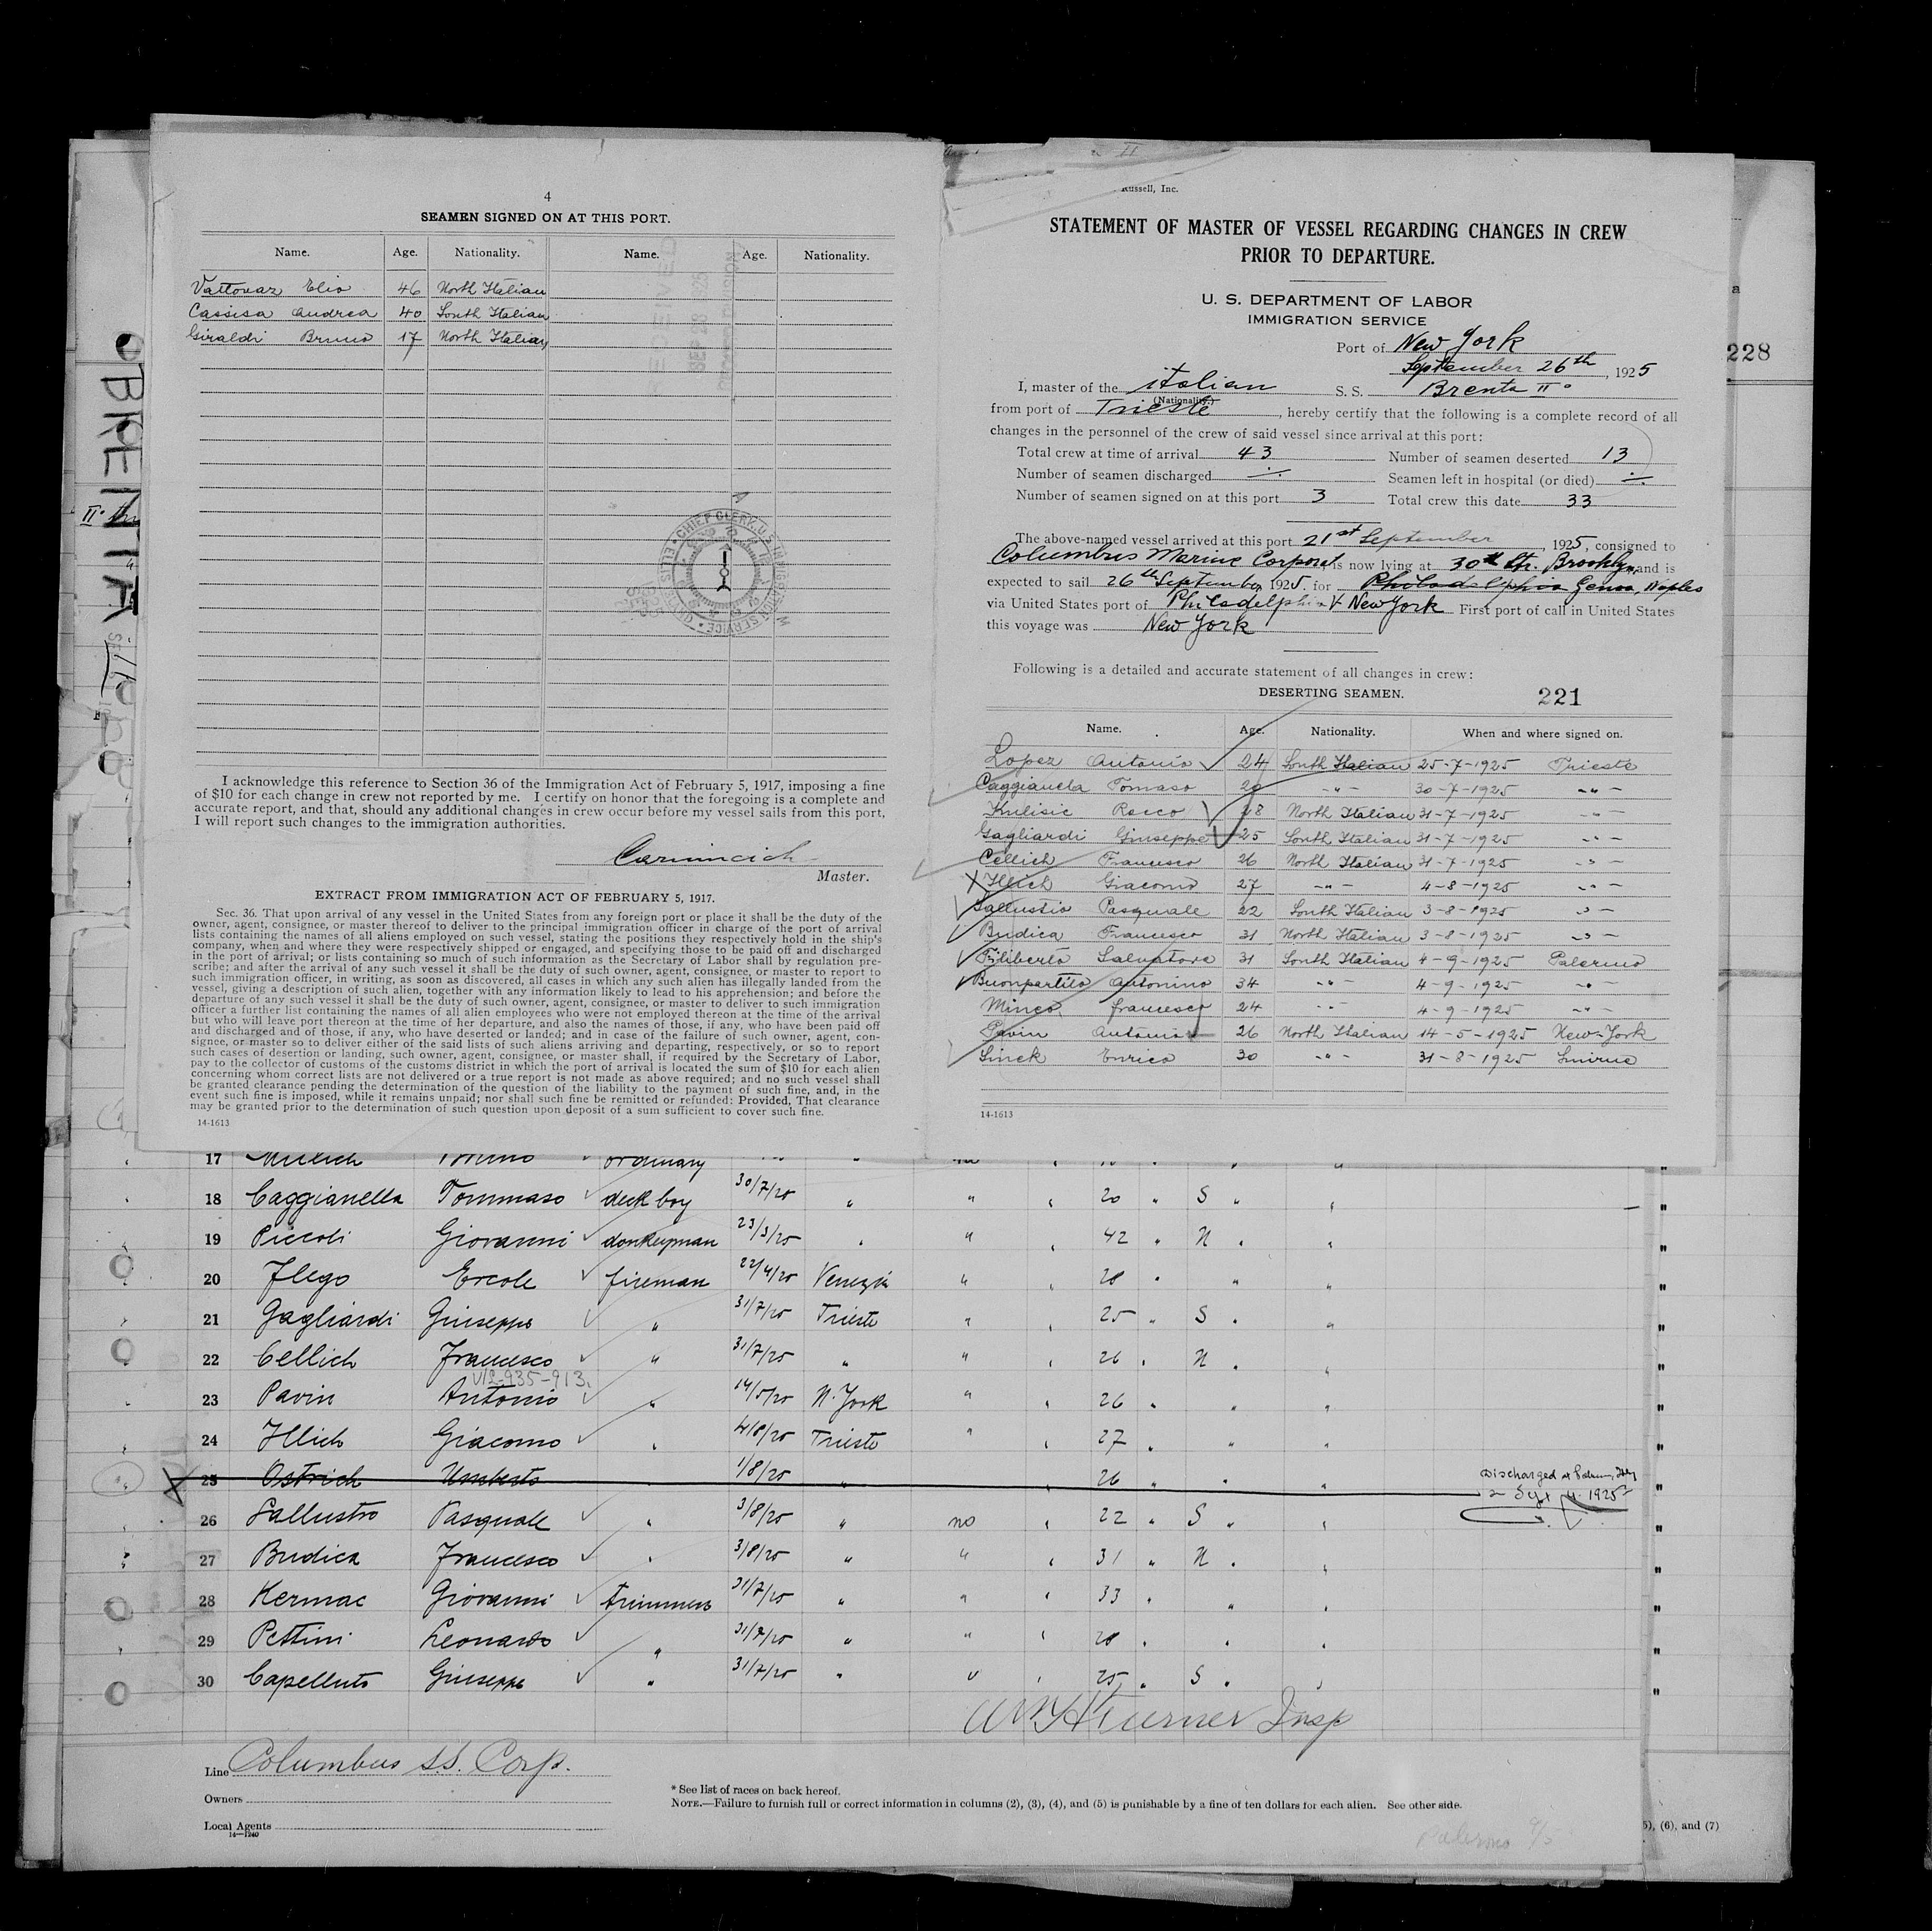 4
SEAMEN SIGNED ON AT THIS PORT.
Name. Age. Nationality. Name. Age. Nationality.
Vattovaz Elio 46 North Italian
Cassisa Andrea 40 South Italian
Giraldi Bruno 17 North Italian
RECEIVED
SEP 28 1925
CHIEF CLERK, U.S. IMMIGRATION SERVICE
I acknowledge this reference to Section 36 of the Immigration Act of February 5, 1917, imposing a fine
of $10 for each change in crew not reported by me. I certify on honor that the foregoing is a complete and
accurate report, and that, should any additional changes in crew occur before my vessel sails from this port,
I will report such changes to the immigration authorities.
Carnincich
Master.
EXTRACT FROM IMMIGRATION ACT OF FEBRUARY 5, 1917.
Sec. 36. That upon arrival of any vessel in the United States from any foreign port or place it shall be the duty of the
owner, agent, consignee, or master thereof to deliver to the principal immigration officer in charge of the port of arrival
lists containing the names of all aliens employed on such vessel, stating the positions they respectively hold in the ship's
company, when and where they were respectively shipped or engaged, and specifying those to be paid off and discharged
in the port of arrival; or lists containing so much of such information as the Secretary of Labor shall by regulation pre-
scribe; and after the arrival of any such vessel it shall be the duty of such owner, agent, consignee, or master to report to
such immigration officer, in writing, as soon as discovered, all cases in which any such alien has illegally landed from the
vessel, giving a description of such alien, together with any information likely to lead to his apprehension; and before the
departure of any such vessel it shall be the duty of such owner, agent, consignee, or master to deliver to such immigration
officer a further list containing the names of all alien employees who were not employed thereon at the time of the arrival
but who will leave port thereon at the time of her departure, and also the names of those, if any, who have been paid off
and discharged and of those, if any, who have deserted or landed; and in case of the failure of such owner, agent, con-
signee, or master so to deliver either of the said lists of such aliens arriving and departing, respectively, or so to report
such cases of desertion or landing, such owner, agent, consignee, or master shall, if required by the Secretary of Labor,
pay to the collector of customs of the customs district in which the port of arrival is located the sum of $10 for each alien
concerning whom correct lists are not delivered or a true report is not made as above required; and no such vessel shall
be granted clearance pending the determination of the question of the liability to the payment of such fine, and, in the
event such fine is imposed, while it remains unpaid; nor shall such fine be remitted or refunded: Provided, That clearance
may be granted prior to the determination of such question upon deposit of a sum sufficient to cover such fine.
14-1613
Russell, Inc.
STATEMENT OF MASTER OF VESSEL REGARDING CHANGES IN CREW
PRIOR TO DEPARTURE.
U. S. DEPARTMENT OF LABOR
IMMIGRATION SERVICE
Port of New York
September 26th, 1925
I, master of the italian S. S. Brenta II°
(Nationality.)
from port of Trieste, hereby certify that the following is a complete record of all
changes in the personnel of the crew of said vessel since arrival at this port:
Total crew at time of arrival 43 Number of seamen deserted 13
Number of seamen discharged ÷ Seamen left in hospital (or died) ÷
Number of seamen signed on at this port 3 Total crew this date 33
The above-named vessel arrived at this port 21st September, 1925, consigned to
Columbus Marine Corporat is now lying at 30th Str. Brooklyn, and is
expected to sail 26th September, 1925. for Philadelphia Genoa, Naples
via United States port of Philadelphia & New York First port of call in United States
this voyage was New York
Following is a detailed and accurate statement of all changes in crew:
DESERTING SEAMEN. 221
Name. Age. Nationality. When and where signed on.
Lopez Antonio 24 South Italian 25-7-1925 Trieste
Caggianela Tomaso 20 -"- 30-7-1925 -"-
Kulisic Rocco 28 North Italian 31-7-1925 -"-
Gagliardi Giuseppe 25 South Italian 31-7-1925 -"-
Cellich Francesco 26 North Italian 31-7-1925 -"-
Illich Giacomo 27 -"- 4-8-1925 -"-
Sallustio Pasquale 22 South Italian 3-8-1925 -"-
Budica Francesco 31 North Italian 3-8-1925 -"-
Filiberto Salvatore 31 South Italian 4-9-1925 Palermo
Buonpartito Antonino 34 -"- 4-9-1925 -"-
Minco francesco 24 -"- 4-9-1925 -"-
Pavin Antonio 26 North Italian 14-5-1925 New-York
Sinck Enrico 30 -"- 31-8-1925 Smirne
14-1613
228
BRENTA
17 ordinary
18 Caggianella Tommaso deck boy 30/7/25 " " " 20 " S "
19 Piccoli Giovanni donkeyman 23/3/25 " " " 42 " N "
20 Flego Ercole fireman 22/4/25 Venezia " " 28 " "
21 Gagliardi Giuseppe " 31/7/25 Trieste " " 25 " S "
22 Cellich Francesco " 31/7/25 " " " 26 " N "
V/2-935-913.
23 Pavin Antonio " 14/5/25 N. York " " 26 " "
24 Illich Giacomo " 4/8/25 Trieste " " 27 " "
25 Ostrich Umberto 1/8/25 " 26 " " Discharged at Palermo, Italy
Sept 4. 1925
26 Sallustro Pasquale " 3/8/25 " no " 22 " S "
27 Budica Francesco " 3/8/25 " " " 31 " N "
28 Kermac Giovanni trimmers 31/7/25 " " " 33 " "
29 Pettini Leonardo " 31/7/25 " " " 28 " "
30 Capelluto Giuseppe " 31/7/25 " " " 25 " S "
Wm H Turner Insp
Line Columbus S.S. Corp.
Owners
Local Agents
14—1240
* See list of races on back hereof.
NOTE.—Failure to furnish full or correct information in columns (2), (3), (4), and (5) is punishable by a fine of ten dollars for each alien. See other side.
5), (6), and (7)
Palermo 9/5